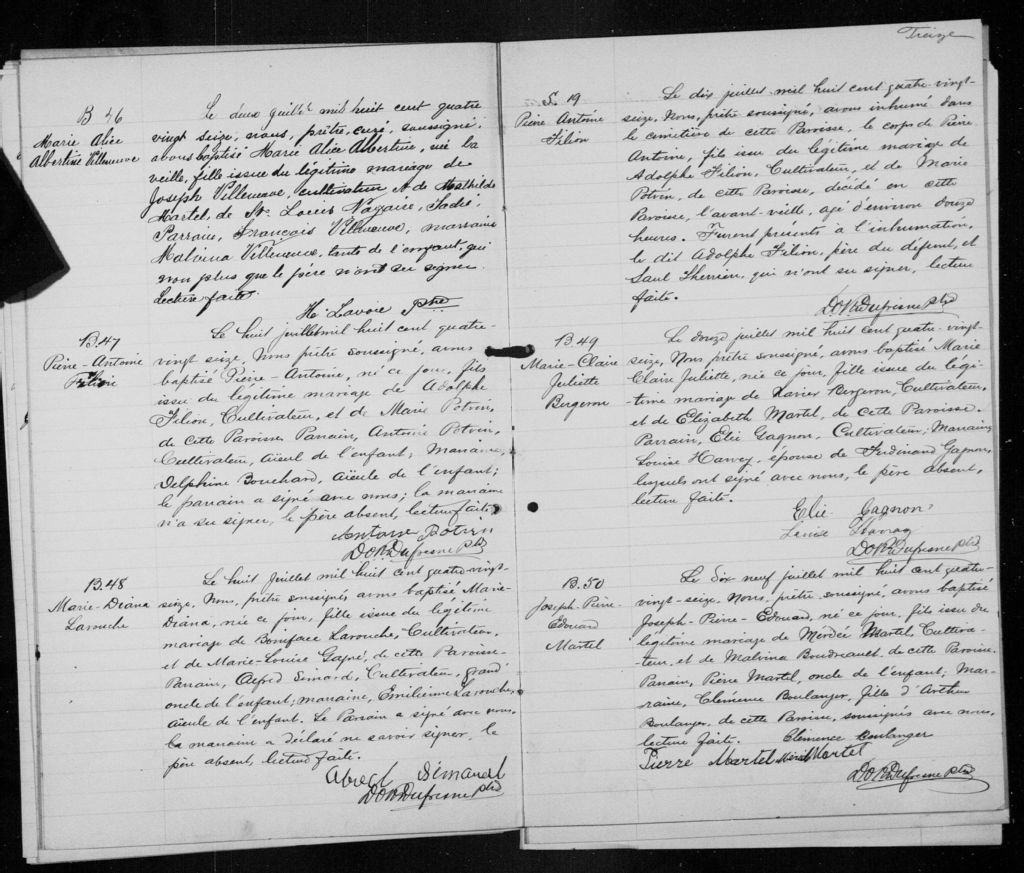 B 46
Marie Alice
Albertine Villeneuve
Le deux juillet mil huit cent quatre
vingt seize, nous, prêtre, curé, soussigné,
avons baptisé Marie Alice Albertine, née la
veille, fille issue du légitime mariage de
Joseph Villeneuve, cultivateur et de Mathilde
Martel, de St. Louis Nazaire,
Parrain, François Villeneuve, marraine
Malvina Villeneuve, tante de l'enfant, qui
non plus que le père n'ont su signer.
Lecture faite.
H. Lavoie Ptre
B.47
Pierre-Antoine
Filion
Le huit juillet mil huit cent quatre-
vingt seize, Nous prêtre soussigné, avons
baptisé Pierre-Antoine, né ce jour, fils
issu du légitime mariage de Adolphe
Filion, Cultivateur, et de Marie Potvin,
de cette Paroisse. Parrain, Antoine Potvin,
Cultivateur, aïeul de l'enfant; Marraine,
Delphine Bouchard, aïeule de l'enfant;
le parrain a signé avec nous; la marraine
n'a su signer, le père absent, lecture faite.
Antoine Potvin
D.O.R. Dufresne Ptre
B.48
Marie-Diana
Larouche
Le huit Juillet mil huit cent quatre-vingt-
seize, Nous, prêtre soussigné, avons baptisé Marie-
Diana, née ce jour, fille issue du légitime
mariage de Boniface Larouche, Cultivateur,
et de Marie-Louise Gagné, de cette Paroisse.
Parrain, Alfred Simard, Cultivateur, grand
oncle de l'enfant; marraine, Emilienne Larouche,
aïeule de l'enfant. Le Parrain a signé avec nous,
la marraine a déclaré ne savoir signer, le
père absent, lecture faite.
Simard
D.O.R. Dufresne ptre
Treize
S. 19
Pierre Antoine
Filion
Le dix juillet mil huit cent quatre-vingt-
seize, Nous, prêtre soussigné, avons inhumé dans
le cimetière de cette Paroisse, le corps de Pierre
Antoine, fils issu du légitime mariage de
Adolphe Filion, Cultivateur, et de Marie
Potvin, de cette Paroisse, décédé en cette
Paroisse, l'avant-veille, agé d'environ douze
heures. Furent presents à l'inhumation,
le dit Adolphe Filion, père du défunt, et
Saul Therrien, qui n'ont su signer, lecture
faite.
D.O.R. Dufresne Ptre
B.49
Marie-Claire
Juliette
Bergeron
Le douze juillet mil huit cent quatre-vingt-
seize, Nous prêtre soussigné, avons baptisé Marie
Claire Juliette, née ce jour, fille issue du légi-
time mariage de Xavier Bergeron, Cultivateur,
et de Elizabeth Martel, de cette Paroisse.
Parrain, Elie Gagnon, Cultivateur; Marraine,
Louise Harvey, épouse de Ferdinand Gagnon,
lesquels ont signé avec nous, le père absent,
lecture faite.
Elie Gagnon
Louise
D.O.R. Dufresne ptre
B.50
Joseph-Pierre-
Edouard
Martel
Le Dix neuf juillet mil huit cent quatre-
vingt-seize, Nous, prêtre soussigné, avons baptisé
Joseph-Pierre-Edouard, né ce jour, fils issu du
légitime mariage de Merdée Martel, Cultiva-
teur, et de Malvina Boudreault, de cette Paroisse.
Parrain, Pierre Martel, oncle de l'enfant; Mar-
raine, Clémence Boulanger, fille d'Arthur
Boulanger, de cette Paroisse, soussignés avec nous,
lecture faite. Clémence Boulanger
Pierre Martel Martel
D.O.R. Dufresne ptre